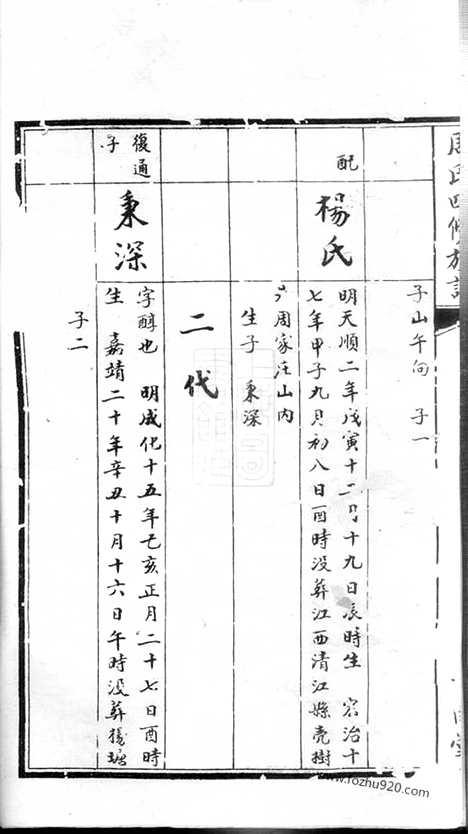 周氏四修族譜
子山午向 子一
配
楊氏
明天順二年戊寅十二月十九日辰時生 宏治十
七年甲子九月初八日酉時没葬江西清江縣壳樹
戶周家庄山内
生子 秉深
二代
復通
子
秉深
字醇也 明成化十五年乙亥正月二十七日酉時
生 嘉靖二十年辛丑十月十六日午時没葬猪塘
子二
www.fozhu920.com